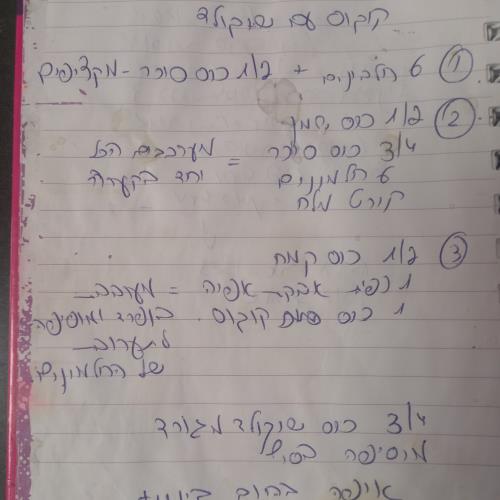 קוקוס עם שוקולד
① 6 חלבונים + 1/2 כוס סוכר - מקציפים
② 1/2 כוס שמן
3/4 כוס סוכר = מערבבים הכל
6 חלמונים יחד בקערה
קורט מלח
③ 1/2 כוס קמח
1 כפית אבקת אפיה = מערבב
1 כוס פתת קוקוס בנפרד ומוסיפה
לתערובת
של החלמונים
3/4 כוס שוקולד מגורד
מוסיפה בסוף
אופה בחום בינוני